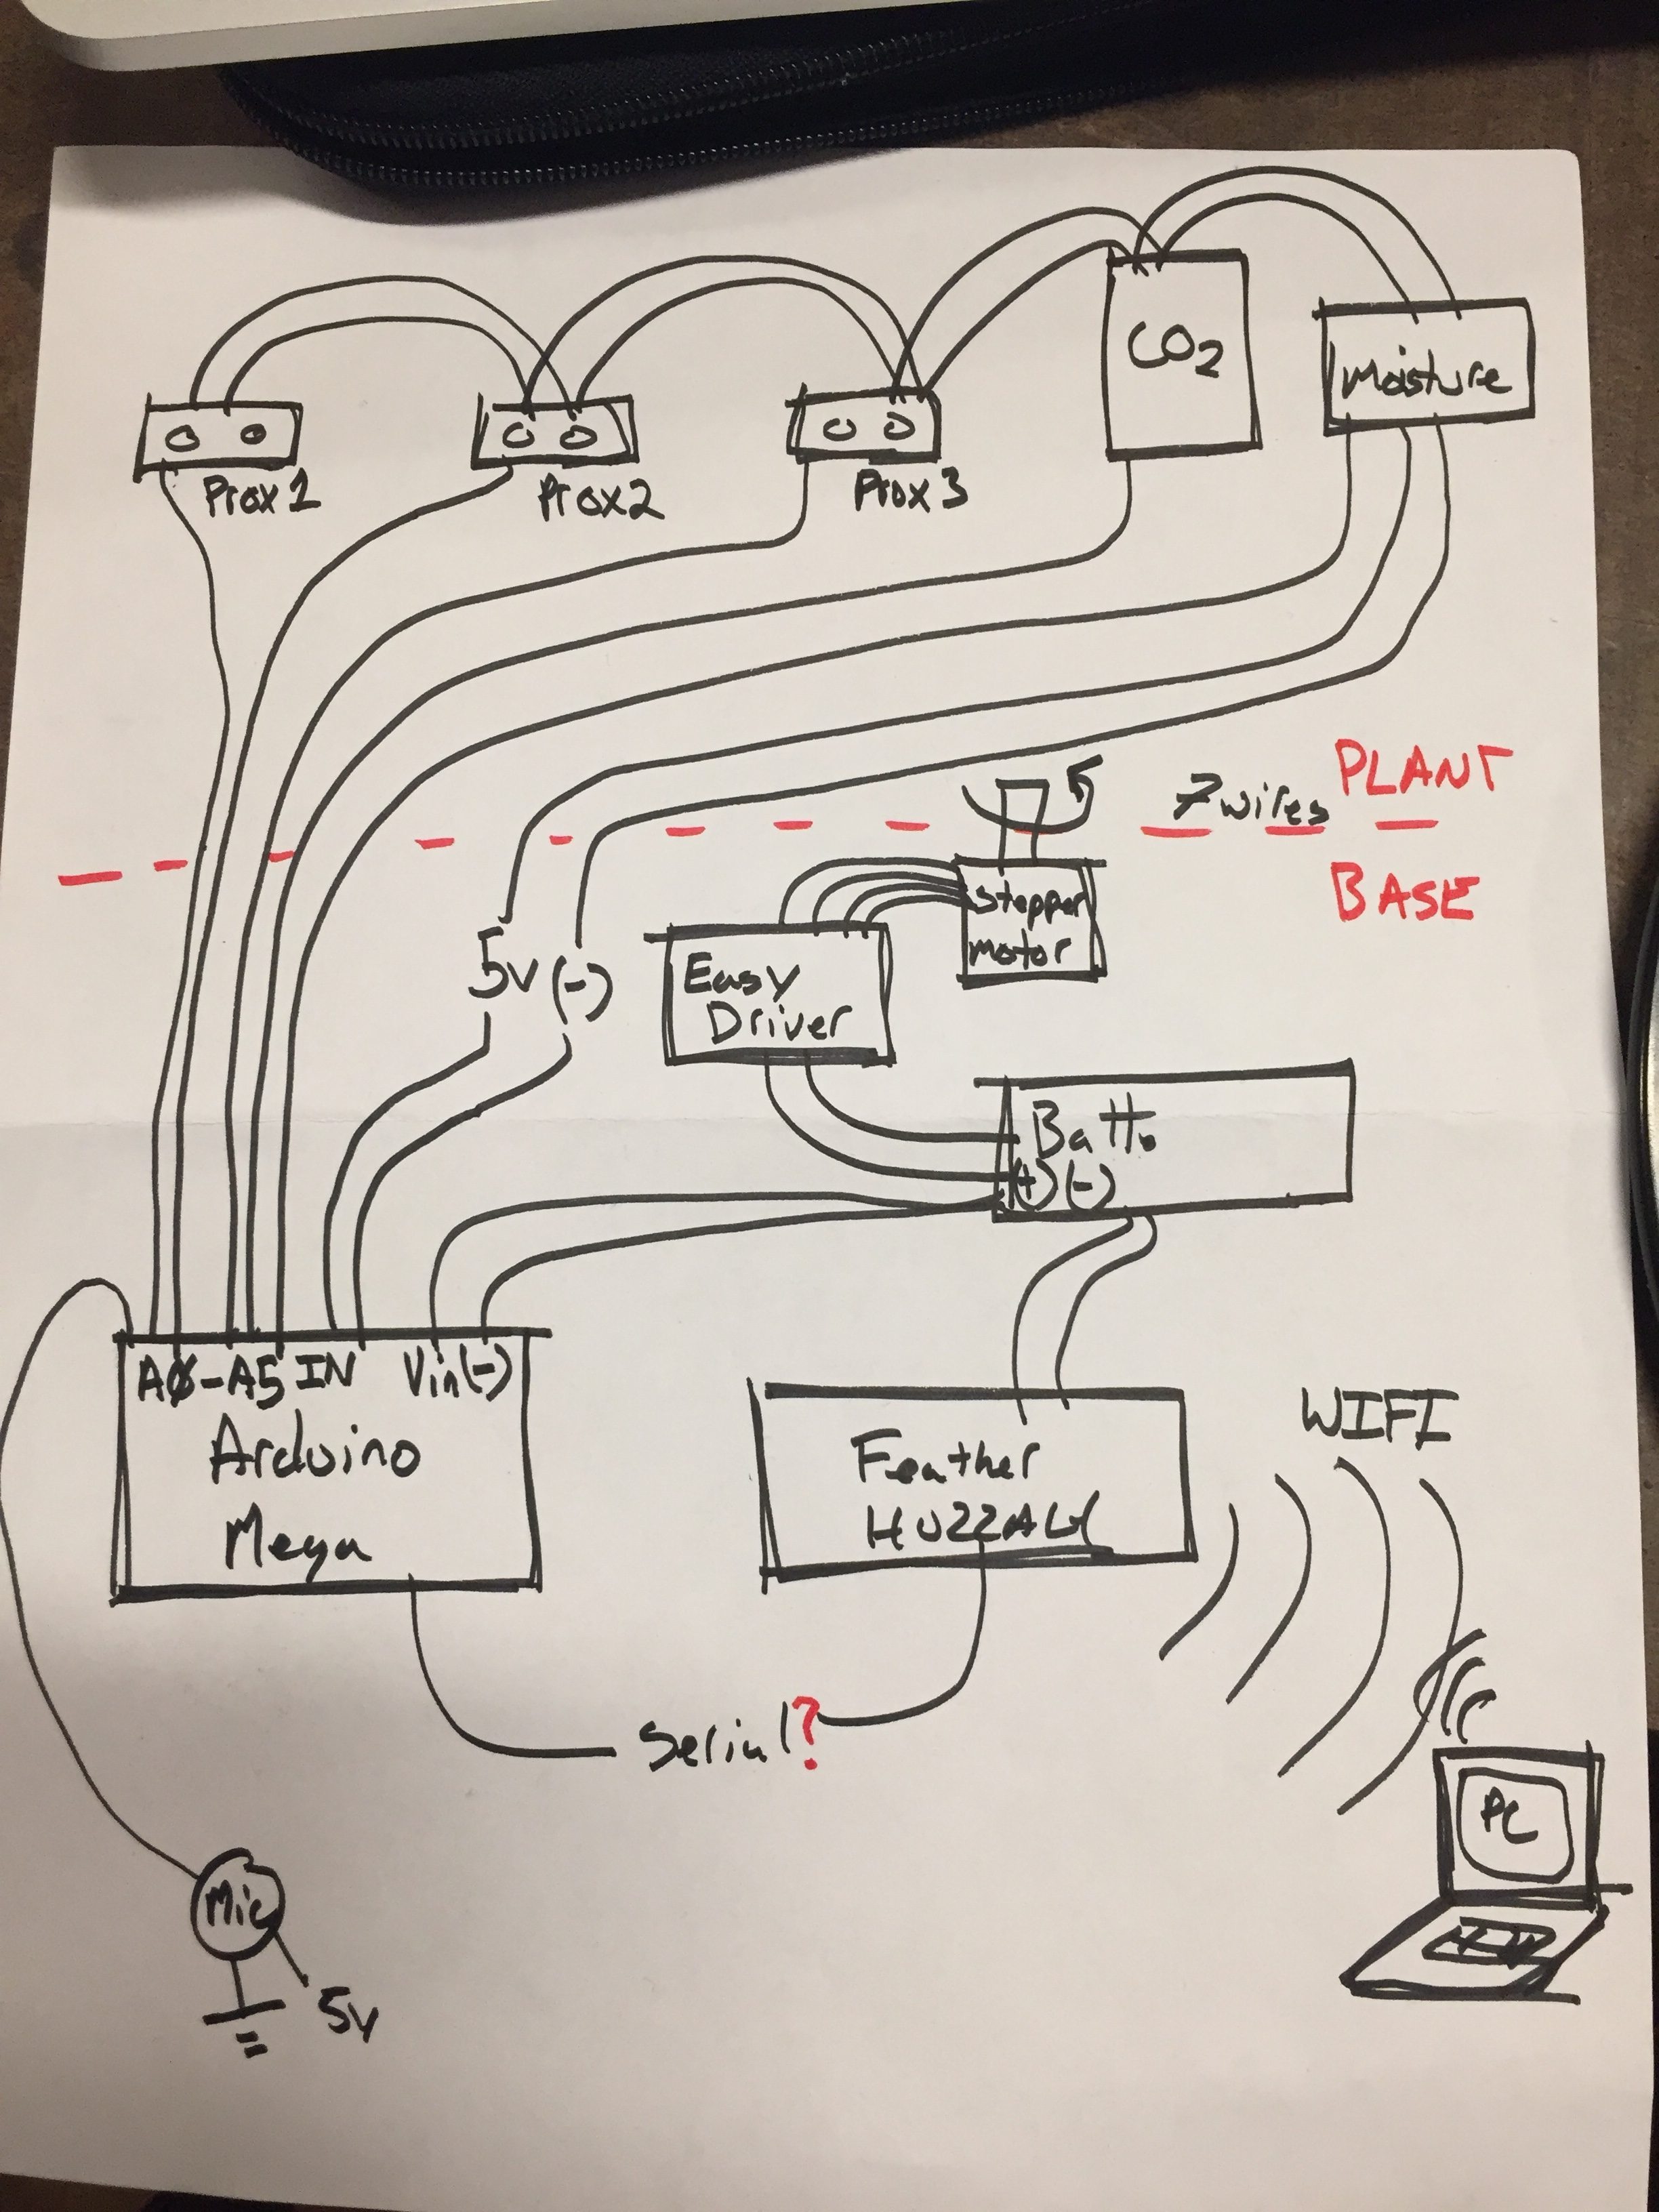 CO2
Moisture
Prox 1
Prox 2
Prox 3
PLANT
7 wires
BASE
Stepper
motor
5v (-)
Easy
Driver
Batt.
(+) (-)
AØ-A5 IN Vin (-)
Arduino
Mega
Feather
HUZZAH
WIFI
Serial?
PC
Mic
5v